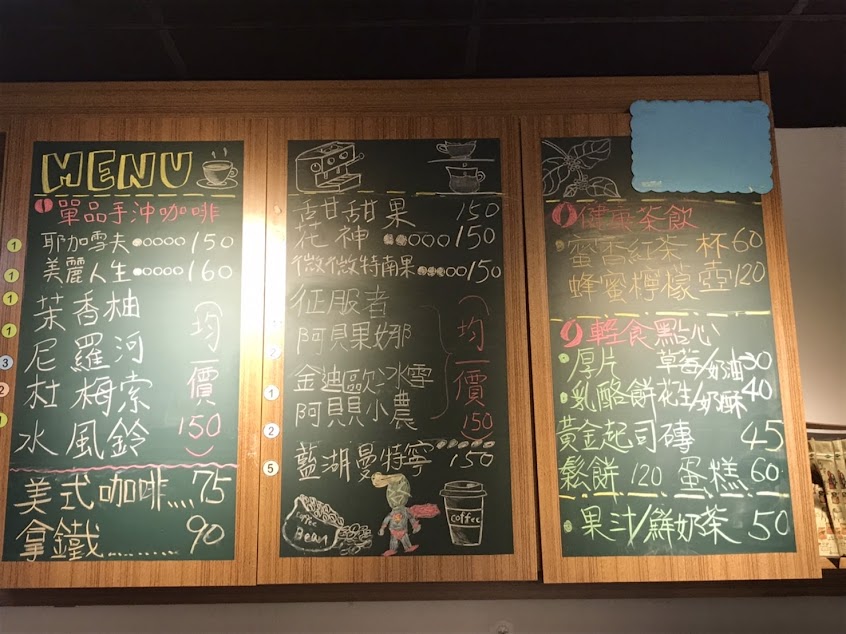 MENU
單品手沖咖啡
耶加雪夫 150
美麗人生 160
茉香柚
尼羅河
杜梅索
水風鈴
均一價 150
美式咖啡 75
拿鐵 90
甜果 150
花神 150
微微特南果 150
征服者
阿貝果娜
金迪歐冰雪
阿貝小農
均一價 150
藍湖曼特寧 150
Coffee Bean
Coffee
健康茶飲
蜜香紅茶 杯60
蜂蜜檸檬 壺120
輕食點心
厚片 草莓/奶油 30
乳酪餅 花生/奶酥 40
黃金起司磚 45
鬆餅 120 蛋糕 60
果汁/鮮奶茶 50
1
1
1
1
3
2
2
1
2
5